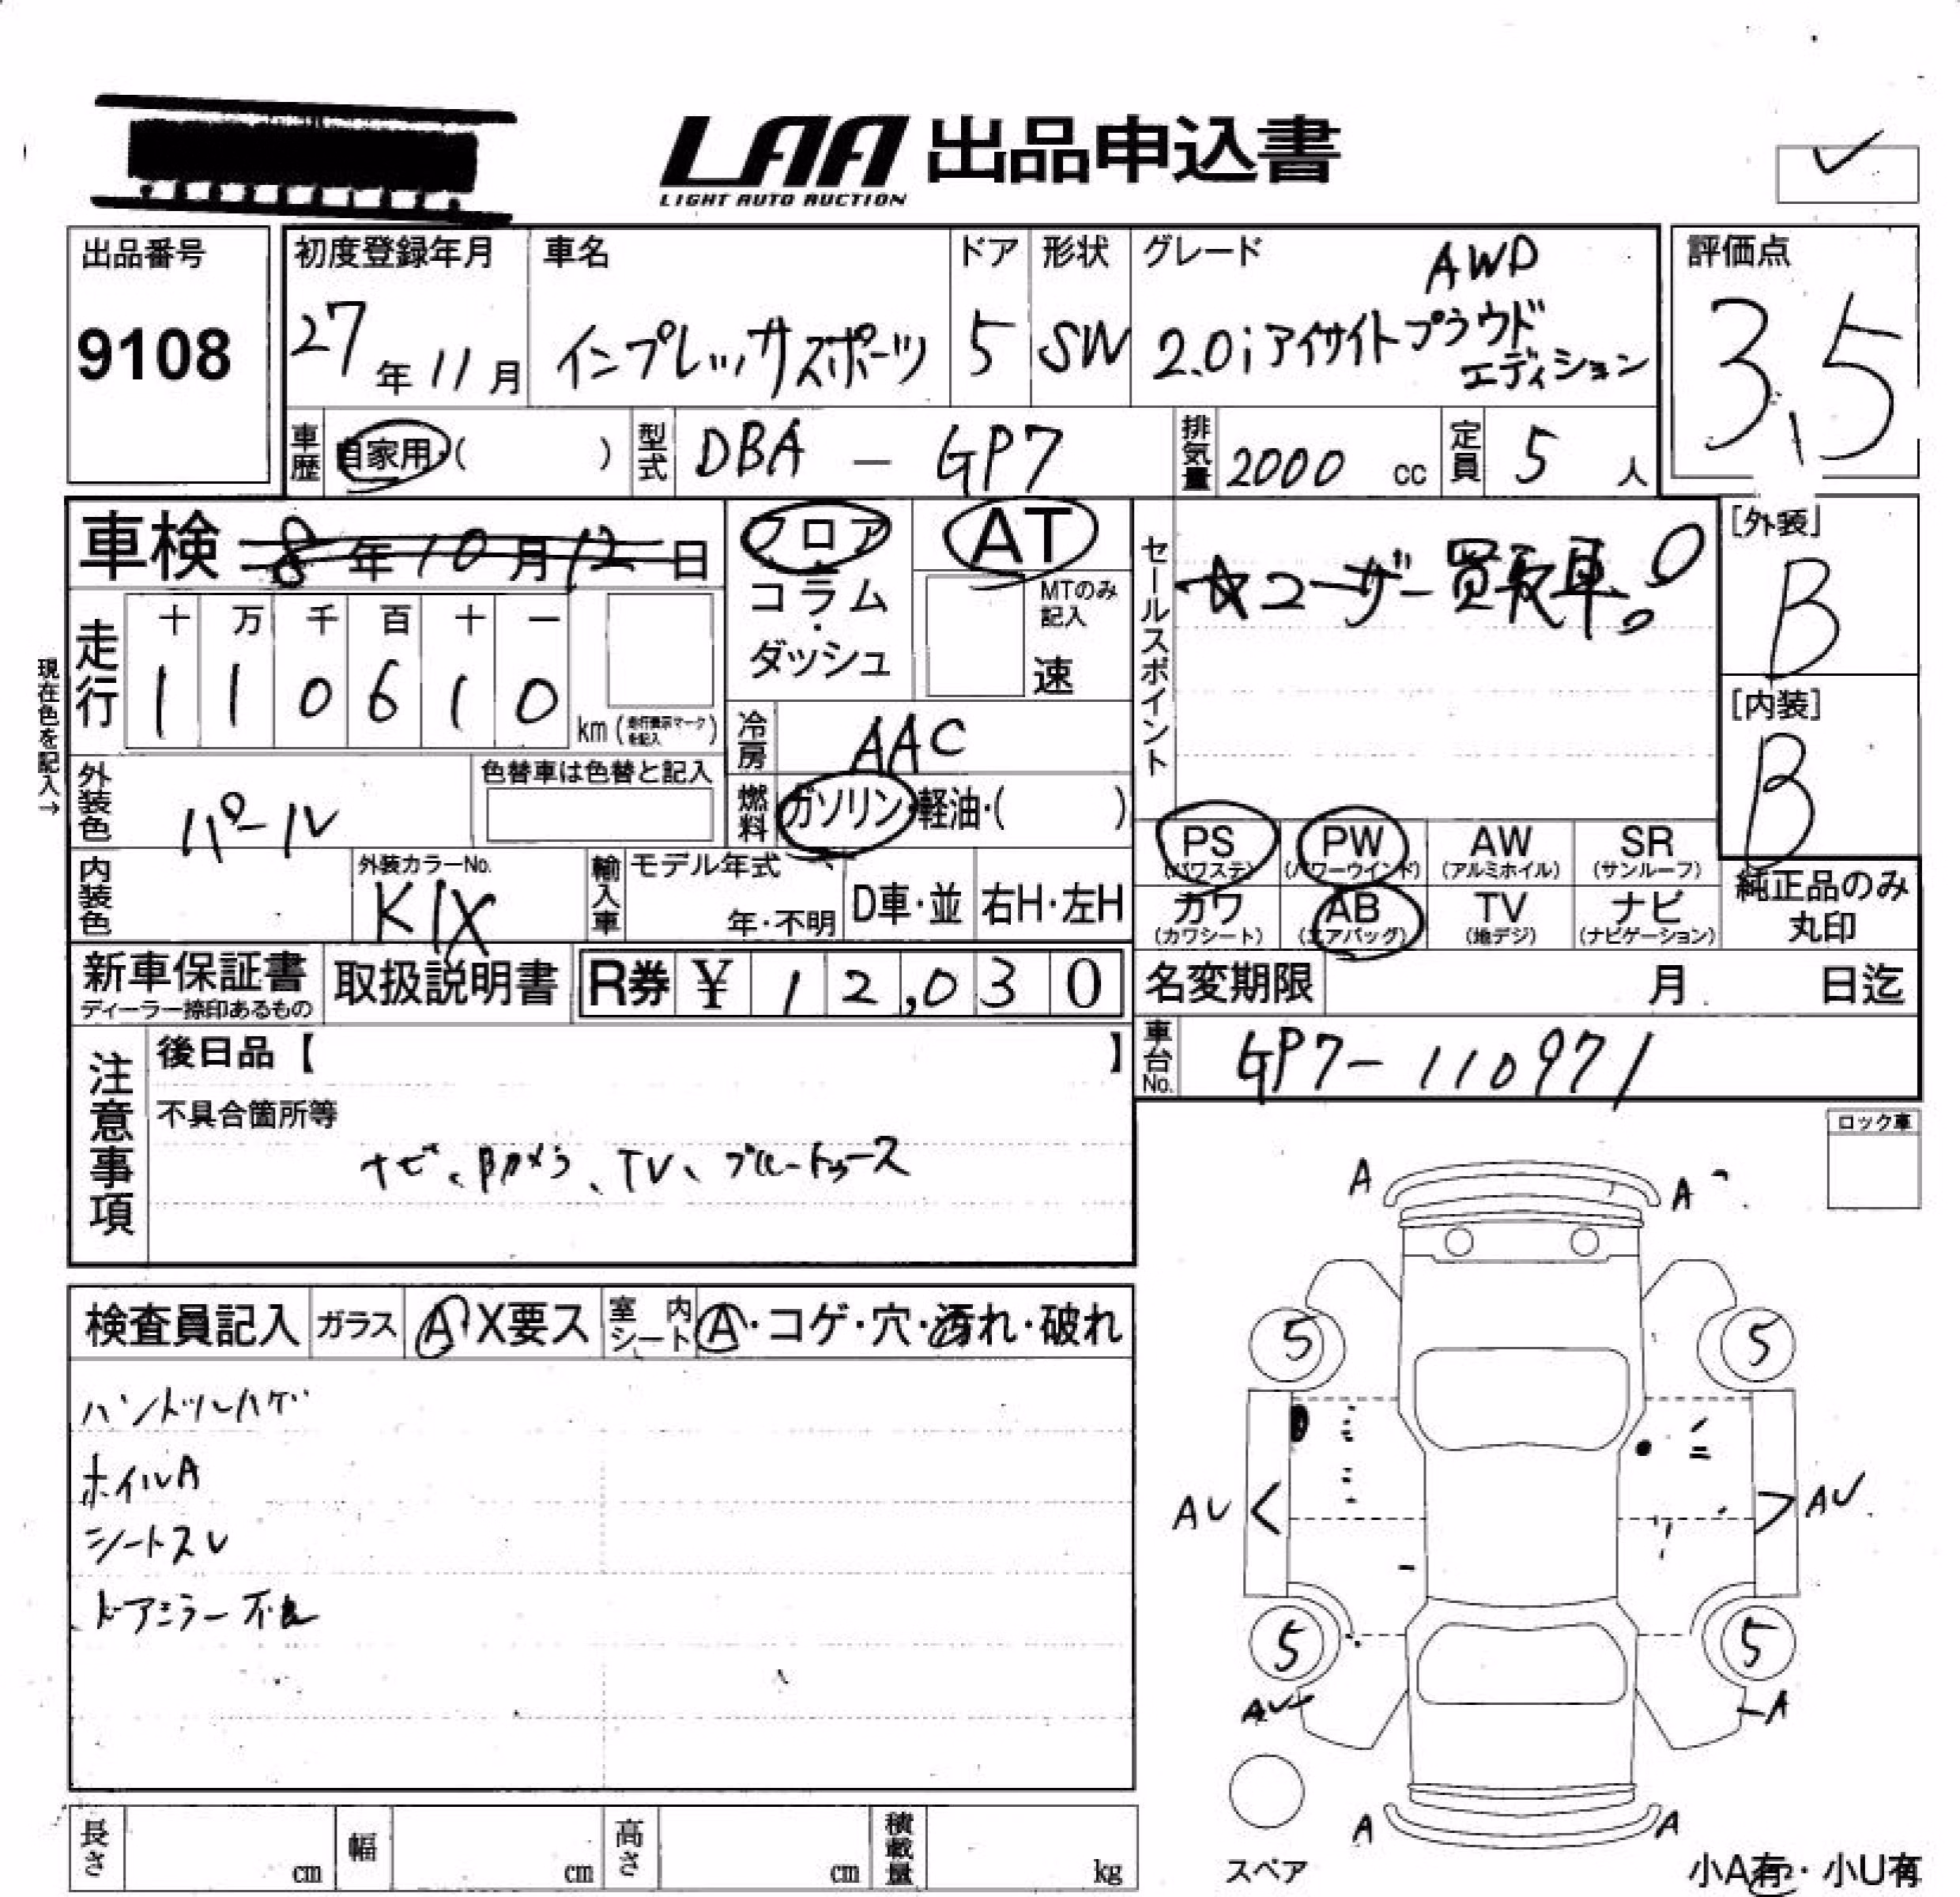 LAA 出品申込書
LIGHT AUTO AUCTION
出品番号
9108
初度登録年月
27年11月
車名
インプレッサスポーツ
ドア
5
形状
SW
グレード
AWD
2.0iアイサイトプラウド
エディション
評価点
3.5
車歴 自家用・( )
型式 DBA - GP7
排気量 2000 cc
定員 5 人
車検 8年10月12日
フロア
コラム
・
ダッシュ
AT
MTのみ
記入
速
セールスポイント
☆ユーザー買取車!
[外装]
B
[内装]
B
現在色を記入→
走行
十 万 千 百 十 一
1 1 0 6 1 0
km (走行表示マークを記入)
冷房 AAC
外装色 パール
色替車は色替と記入
燃料 ガソリン・軽油・( )
内装色
外装カラーNo.
K1X
輸入車
モデル年式
年・不明
D車・並
右H・左H
PS (パワステ)
PW (パワーウインド)
AW (アルミホイル)
SR (サンルーフ)
カワ (カワシート)
AB (エアバッグ)
TV (地デジ)
ナビ (ナビゲーション)
純正品のみ
丸印
新車保証書
ディーラー捺印あるもの
取扱説明書
R券 ¥ 12,030
名変期限 月 日迄
車台No. GP7-110971
注意事項
後日品【 】
不具合箇所等
ナビ、Bカメラ、TV、ブルートゥース
ロック車
検査員記入
ガラス
A X要ス
室内シート
A・コゲ・穴・汚れ・破れ
ハンドルハゲ
ホイルA
シートスレ
ドアミラー不良
A A
5 5
AU AU
5 5
AU A
A A
スペア
小A有・小U有
長さ cm
幅 cm
高さ cm
積載量 kg